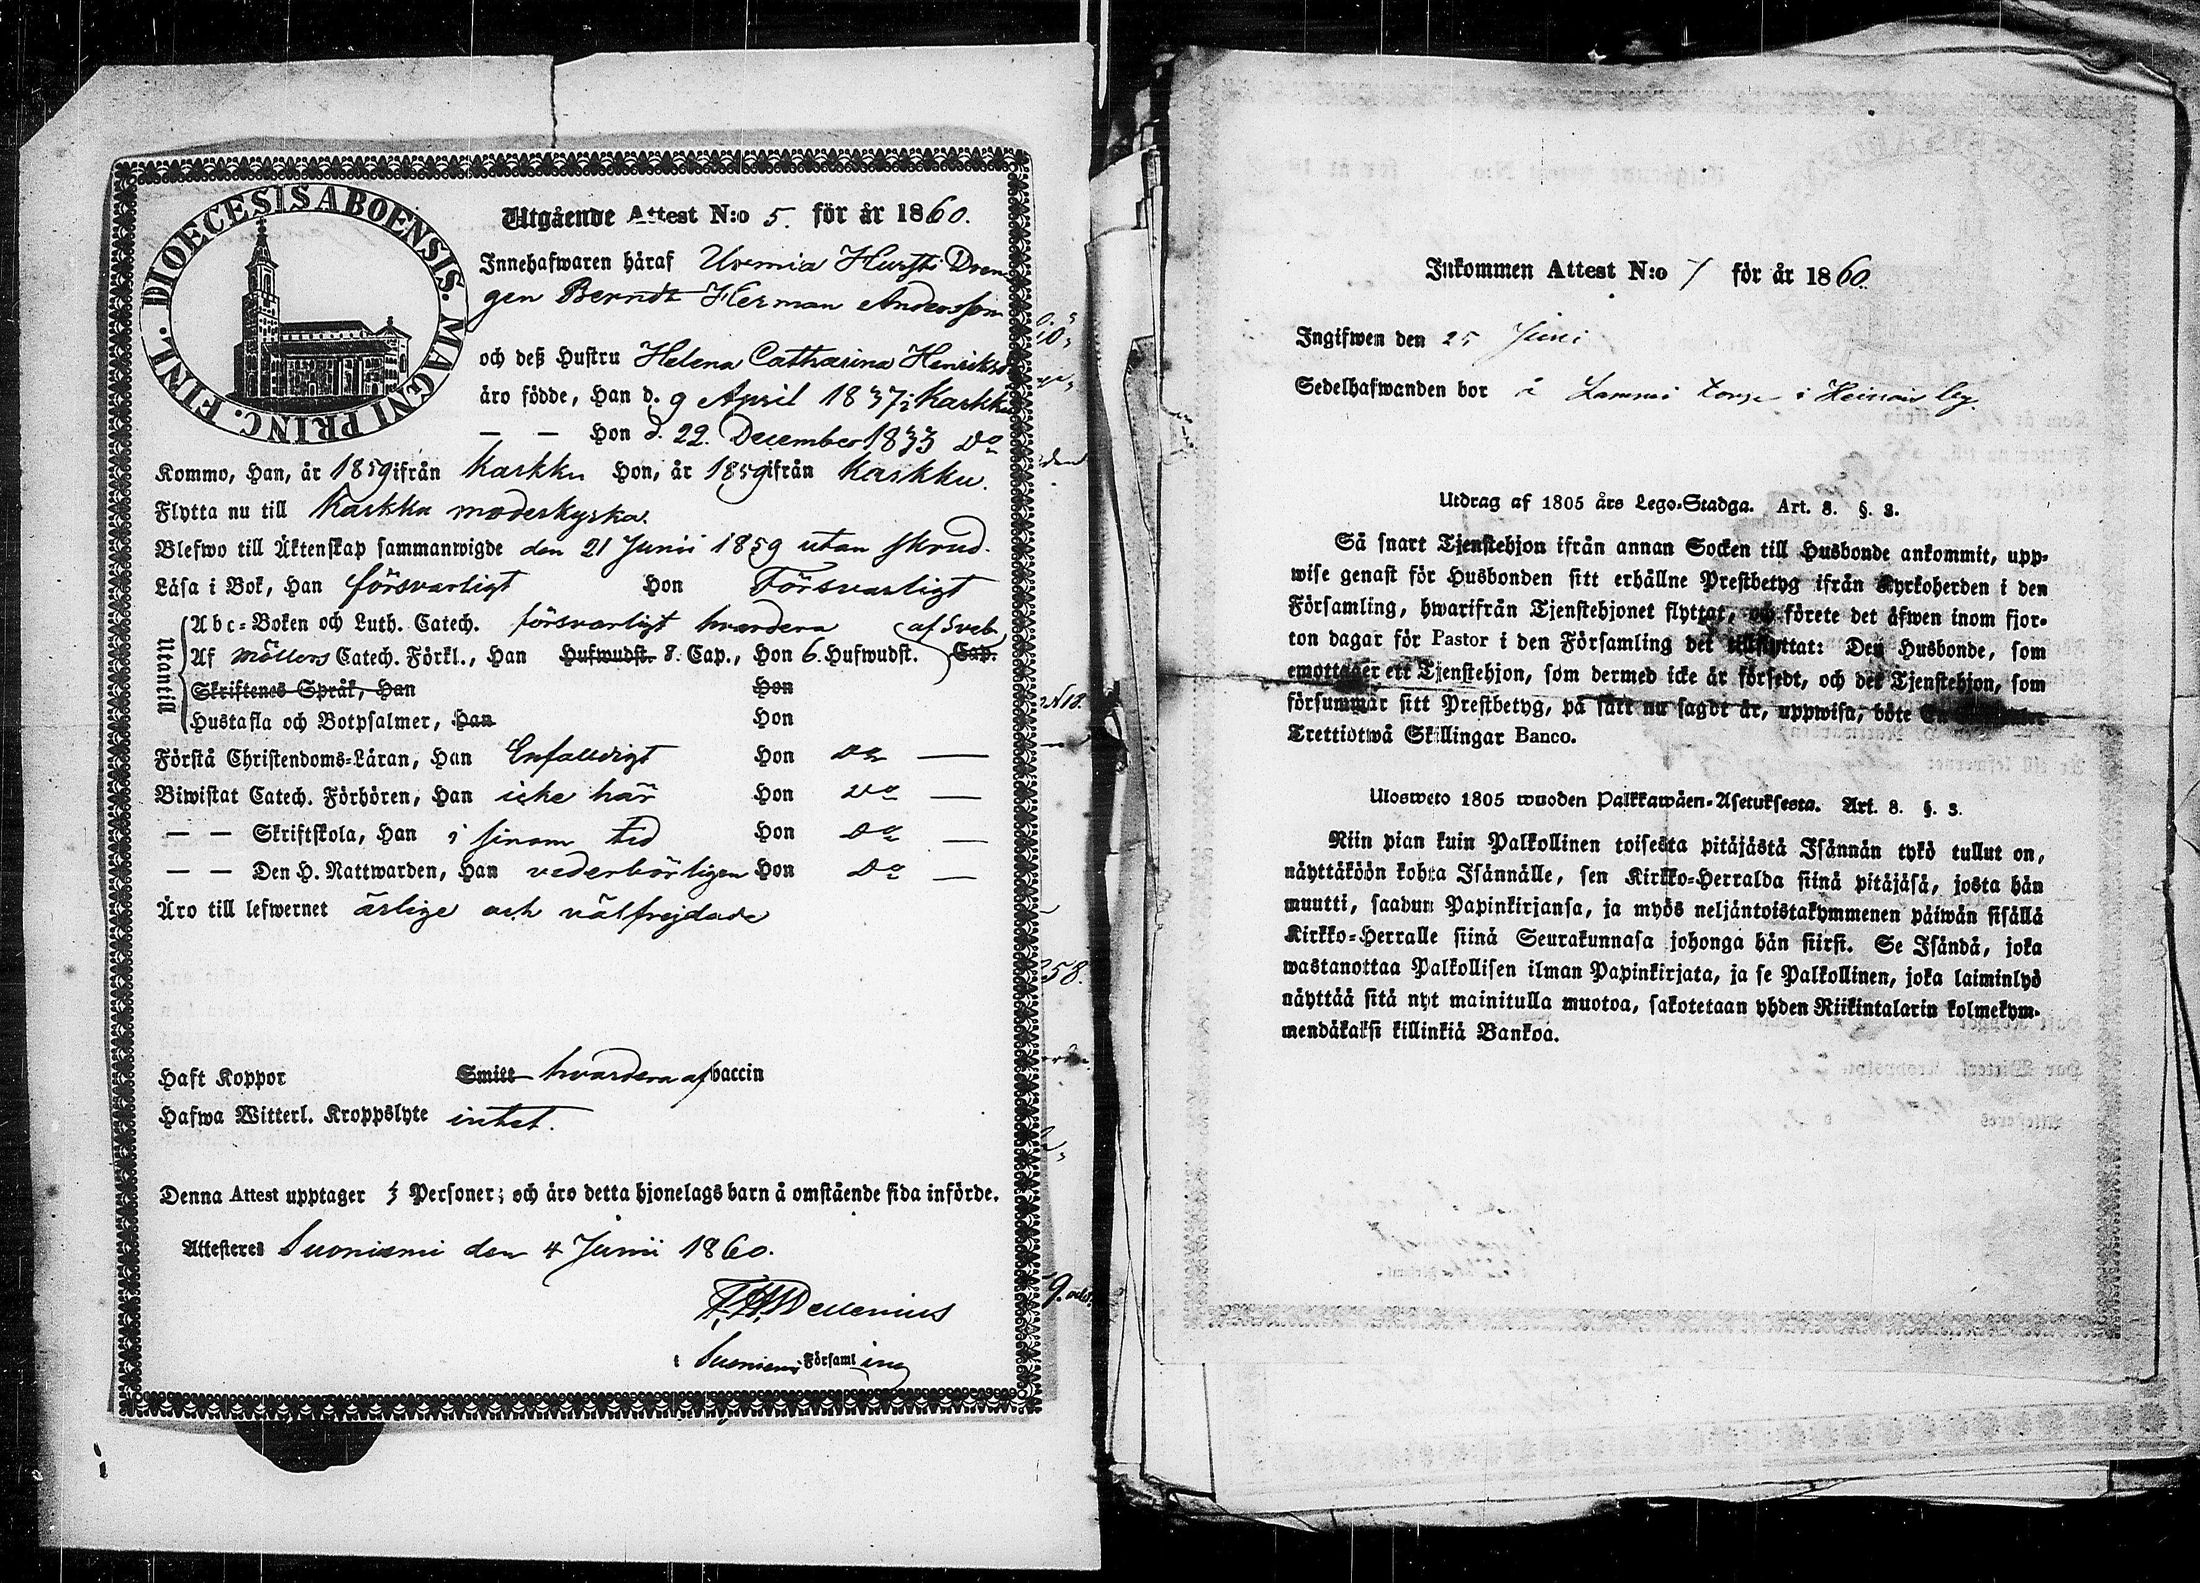 DIOECESIS ABOENSIS. MAGNI PRINC. FINL.
Utgående Attest N:o 5. för år 1860.
Innehafwaren häraf Uremia Hursti Dren
gen Berndt Herman Andersson
och deß Hustru Helena Catharina Henriksd
äro födde, Han d. 9 April 1837 i Karkku
— — Hon d. 22. December 1833 Do
Kommo, Han, år 1859 ifrån Karkku Hon, år 1859 ifrån Karkku.
Flytta nu till Karkku moderkyrka.
Blefwo till Äktenskap sammanwigde den 21 Junii 1859 utan skrud.
Läsa i Bok, Han försvarligt Hon Försvarligt
Utantill
Abc-Boken och Luth. Catech. försvarligt hvardera af Sveb.
Af Möllers Catech. Förkl., Han Hufwudst. 8. Cap., Hon 6. Hufwudst. Cap.
Skriftenes Språk, Han Hon
Hustafla och Botpsalmer, Han Hon
Förstå Christendoms-Läran, Han Enfalldigt Hon Do —
Biwistat Catech. Förhören, Han icke här Hon Do —
— — Skriftskola, Han i sinom tid Hon Do —
— — Den H. Nattwarden, Han vederbörligen Hon Do —
Äro till lefwernet ärlige och välfrejdade
Haft Koppor Smitt hvardera af vaccin
Hafwa Witterl. Kroppslyte intet.
Denna Attest upptager 3 Personer; och äro detta hjonelags barn å omstående sida införde.
Attesteres Suoniemi den 4 Junii 1860.
i Suoniemi Församling
Inkommen Attest N:o 7 för år 1860.
Ingifwen den 25 Juni
Sedelhafwanden bor å Lammi torp i Heinois by.
Utdrag af 1805 års Lego-Stadga. Art. 8. §. 3.
Så snart Tjenstehjon ifrån annan Socken till Husbonde ankommit, upp-
wise genast för Husbonden sitt erhållne Prestbetyg ifrån Kyrkoherden i den
Församling, hwarifrån Tjenstehjonet flyttat, och förete det äfwen inom fjor-
ton dagar för Pastor i den Församling det tillflyttat: Den Husbonde, som
emottager ett Tjenstehjon, som dermed icke är försedt, och det Tjenstehjon, som
försummar sitt Prestbetyg, på sätt nu sagdt är, uppwisa, böte En
Trettiotwå Skillingar Banco.
Ulosweto 1805 wuoden Palkkawäen-Asetuksesta. Art. 8. §. 3.
Niin pian kuin Palkollinen toisesta pitäjästä Isännän tykö tullut on,
näyttäköön kohta Isännälle, sen Kirkko-Herralda siinä pitäjäsä, josta hän
muutti, saadun Papinkirjansa, ja myös neljäntoistakymmenen päiwän sisällä
Kirkko-Herralle siinä Seurakunnasa johonga hän siirsi. Se Isändä, joka
wastanottaa Palkollisen ilman Papinkirjata, ja se Palkollinen, joka laiminlyö
näyttää sitä nyt mainitulla muotoa, sakotetaan yhden Riikintalarin kolmekym-
mendäkaksi killinkiä Bankoa.